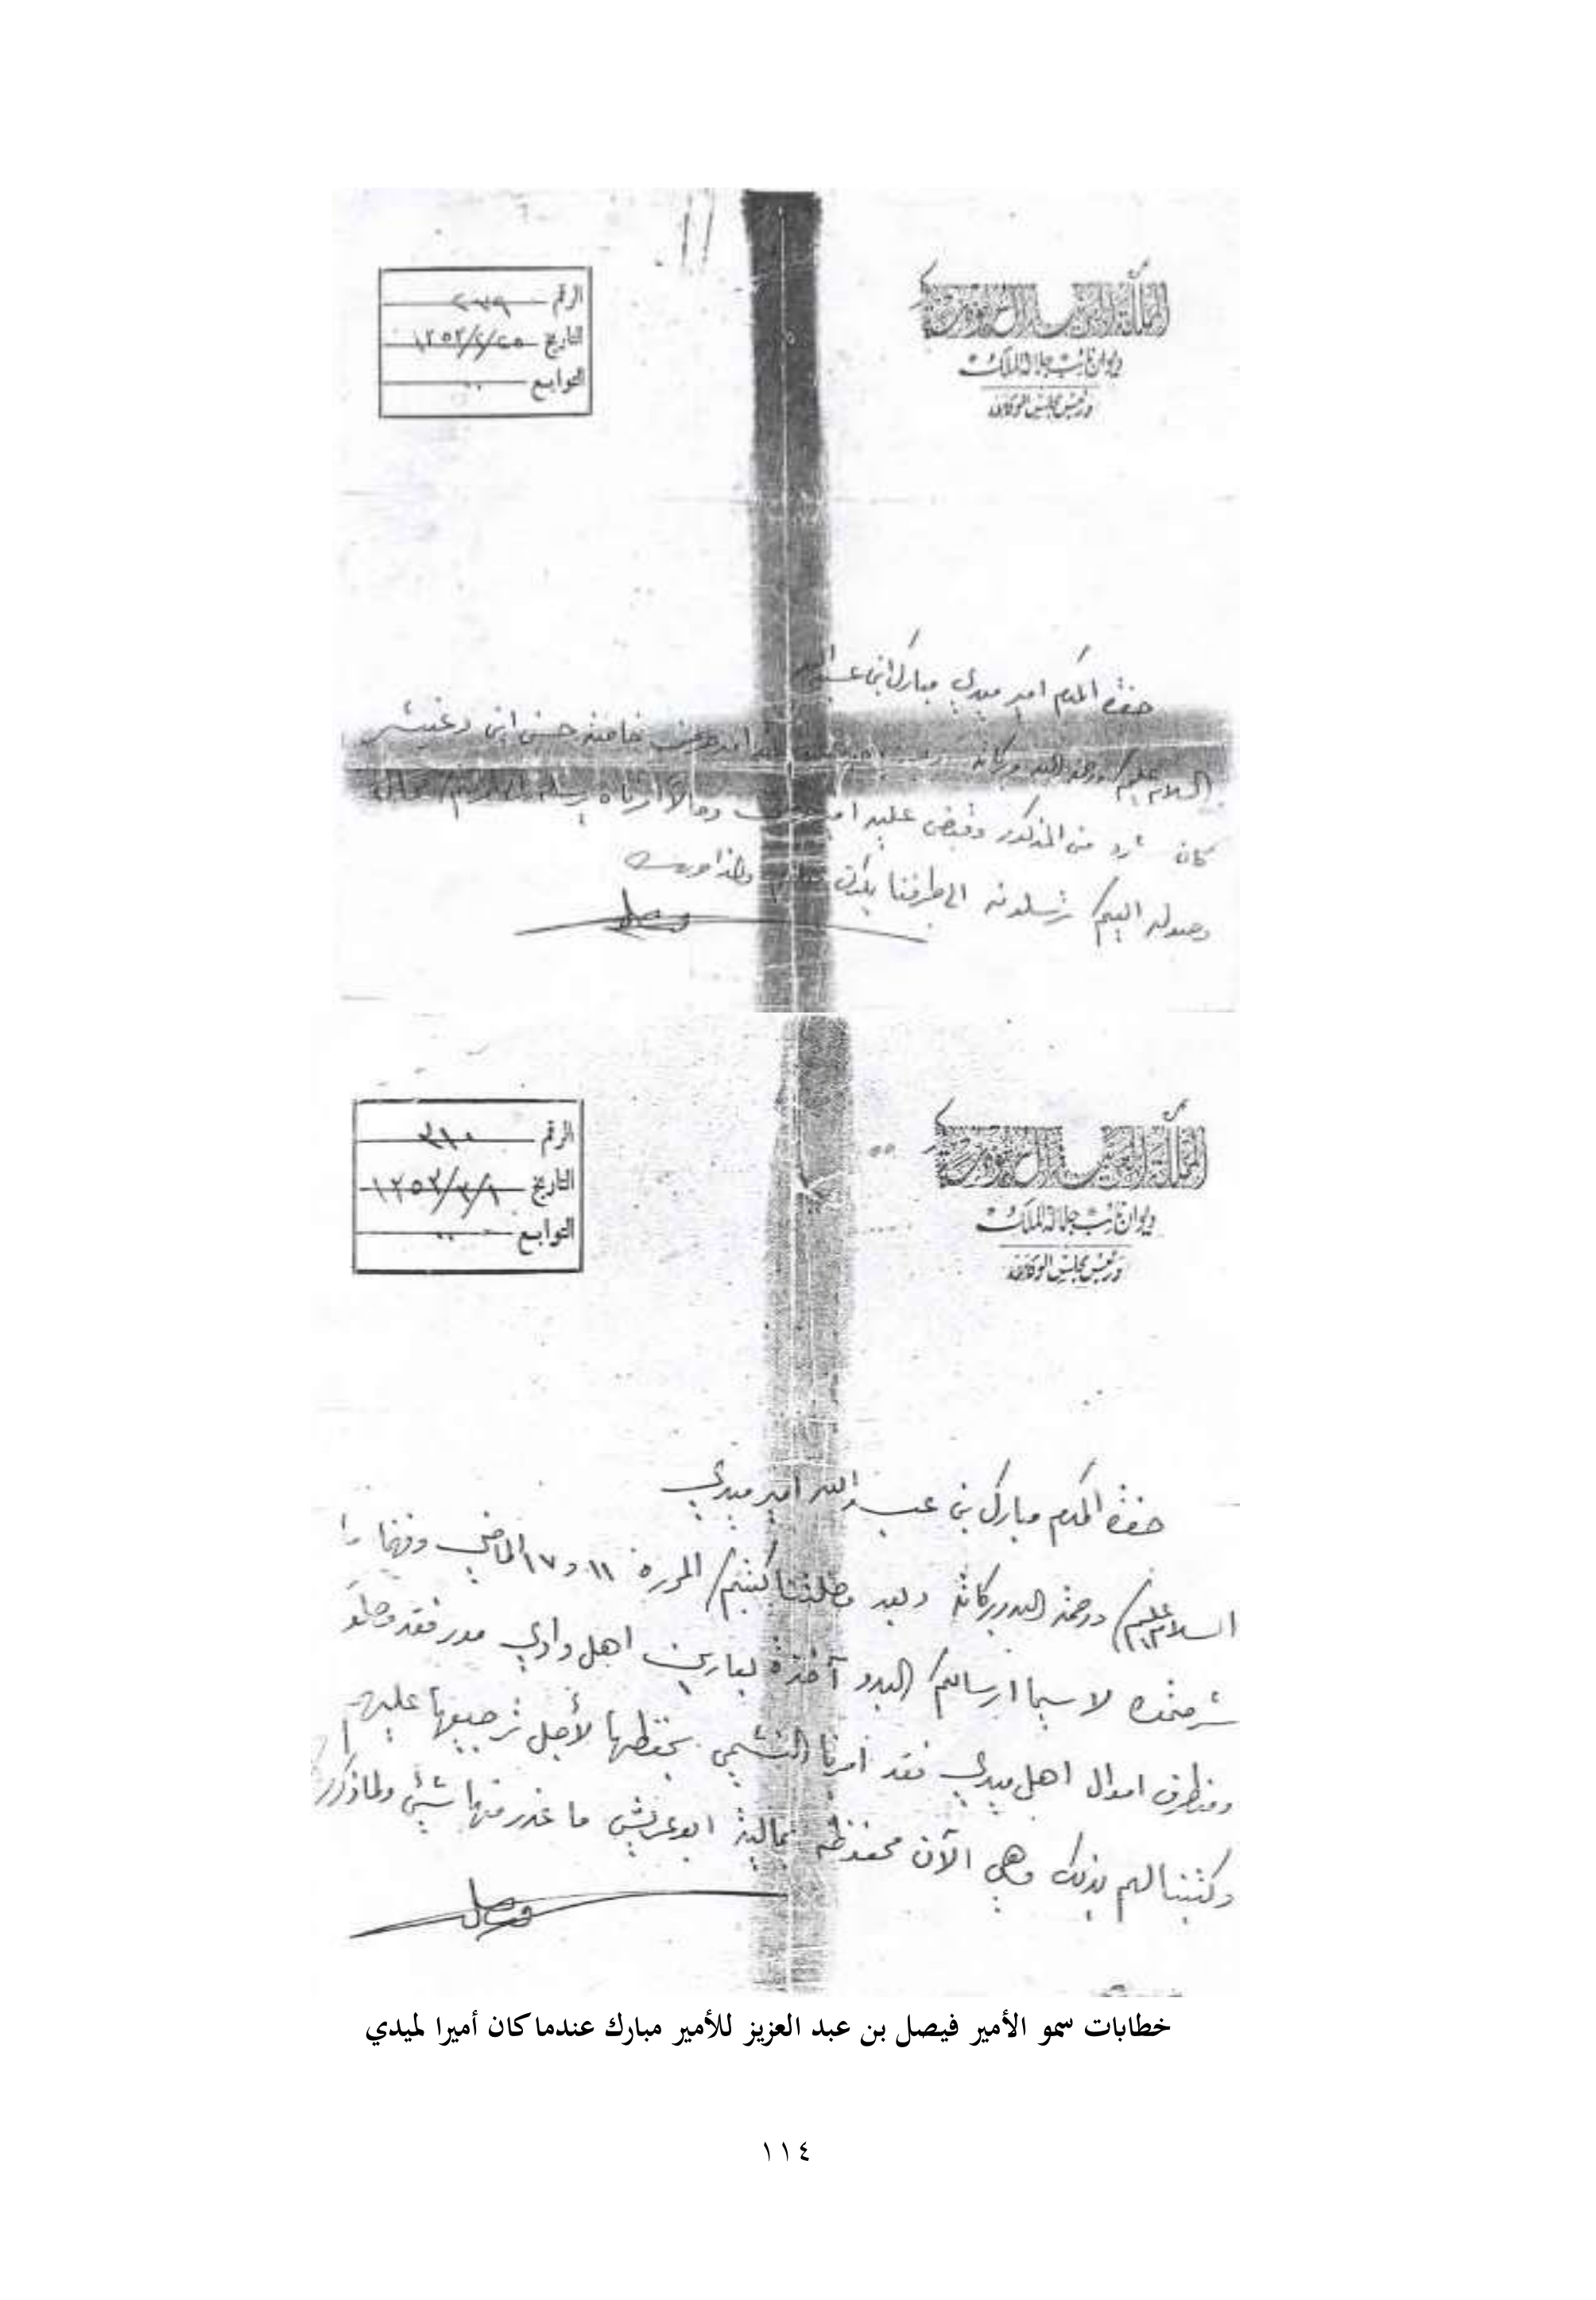 المملكة العربية السعودية
ديوان نائب جلالة الملك
ورئيس مجلس الوكلاء
الرقم
التاريخ ١٣٥٣/٢/٢٥
التوابع ٠٠
حضرة المكرم امير ميدي مبارك ابن
السلام عليكم ورحمة الله وبركاته خادمه حسن ابن دغيشر
كان شارد من المذكور وقبض عليه وحالا
وصوله اليكم ترسلونه الى طرفنا يكون
فيصل
المملكة العربية السعودية
ديوان نائب جلالة الملك
ورئيس مجلس الوكلاء
الرقم ٣١٠
التاريخ ١٣٥٣/٣/١
التوابع ٠٠
حضرة المكرم مبارك بن عبد الله امير ميدي
السلام عليكم ورحمة الله وبركاته وبعد وصلتنا كتبكم المؤرخة ١١ و ١٧ الماضي وفهمنا ما
شرحتوه لا سيما ارسالكم البدو آخذة بعارين اهل وادي مور فقد وصلو
ومنطرف اموال اهل ميدي فقد أمرنا النشمي بحفظها لأجل ترجيعها عليهم
وكتبنا لهم بذلك وهي الآن محفوظة بمالية ابو عريش ما غدر منها شيء ولما ذكر
فيصل
خطابات سمو الأمير فيصل بن عبد العزيز للأمير مبارك عندما كان أميرا لميدي
١١٤